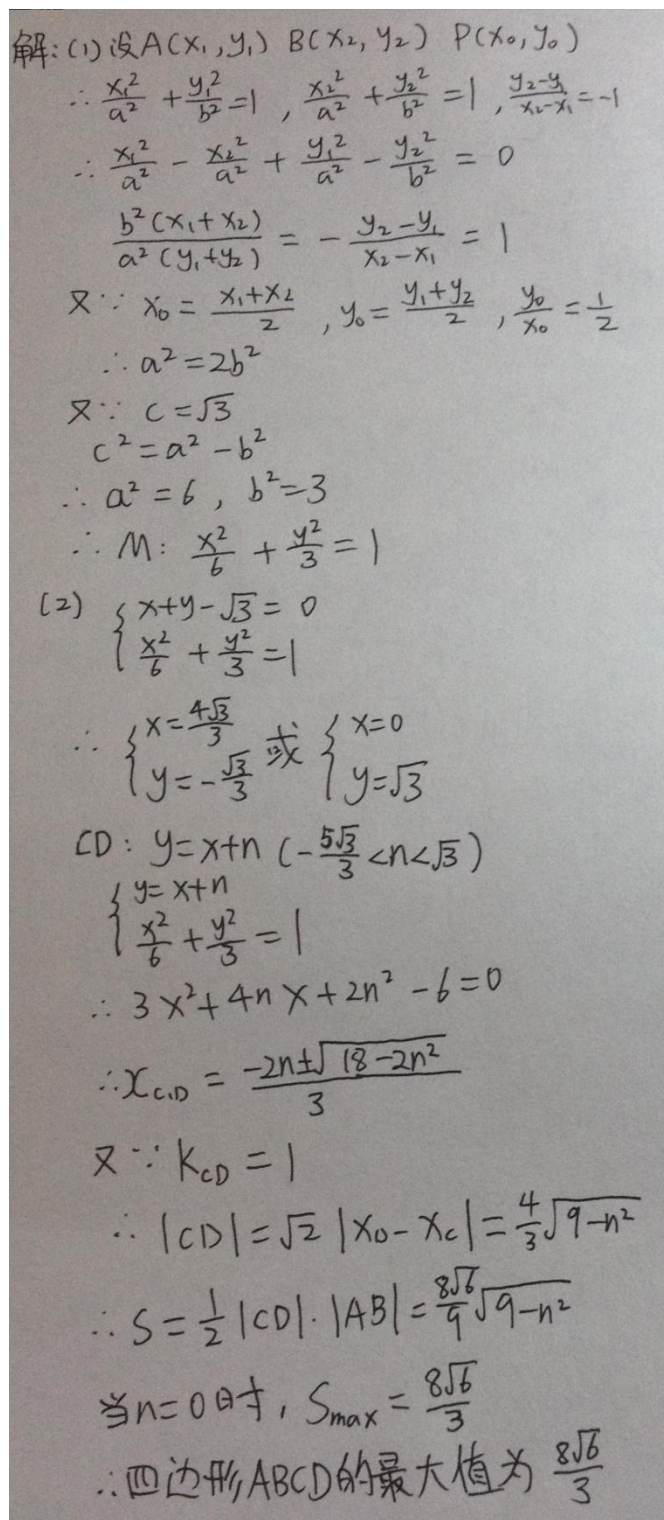 解:(1)设A(x₁,y₁) B(x₂,y₂) P(x₀,y₀)
∴ x₁²/a² + y₁²/b² = 1 , x₂²/a² + y₂²/b² = 1 , (y₂-y₁)/(x₂-x₁) = -1
∴ x₁²/a² - x₂²/a² + y₁²/a² - y₂²/b² = 0
b²(x₁+x₂)/a²(y₁+y₂) = - (y₂-y₁)/(x₂-x₁) = 1
又∵ x₀ = (x₁+x₂)/2 , y₀ = (y₁+y₂)/2 , y₀/x₀ = 1/2
∴ a²=2b²
又∵ c=√3
c²=a²-b²
∴ a²=6 , b²=3
∴ M: x²/6 + y²/3 = 1
(2) { x+y-√3=0
x²/6 + y²/3 = 1
∴ { x=4√3/3 y=-√3/3 或 { x=0 y=√3
CD: y=x+n (-5√3/3<n<√3)
{ y=x+n
x²/6 + y²/3 = 1
∴ 3x²+4nx+2n²-6=0
∴ x_C,D = (-2n±√(18-2n²))/3
又∵ K_CD = 1
∴ |CD|=√2|x_D-x_C|=4/3√(9-n²)
∴ S=1/2|CD|·|AB|=8√6/9√(9-n²)
当n=0时, Smax=8√6/3
∴四边形ABCD的最大值为 8√6/3